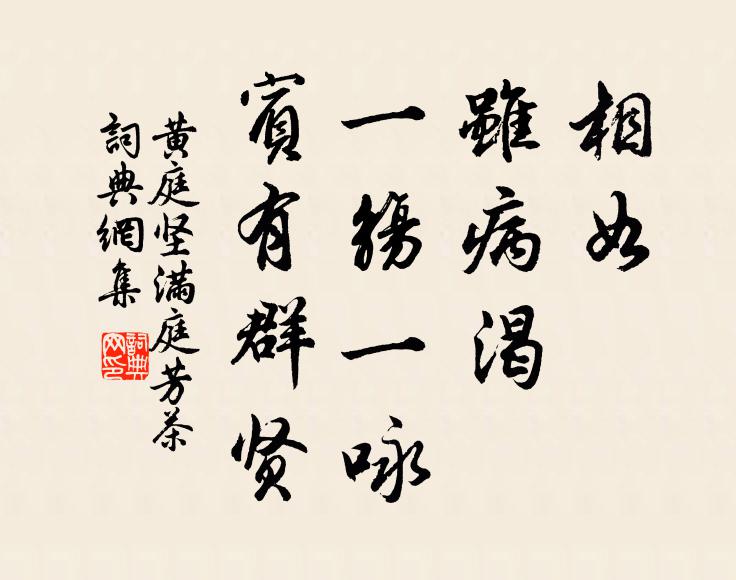 相如
雖病渴
一觴一咏
賓有群贤
黄庭坚满庭芳茶
詞典網集
詞典网印